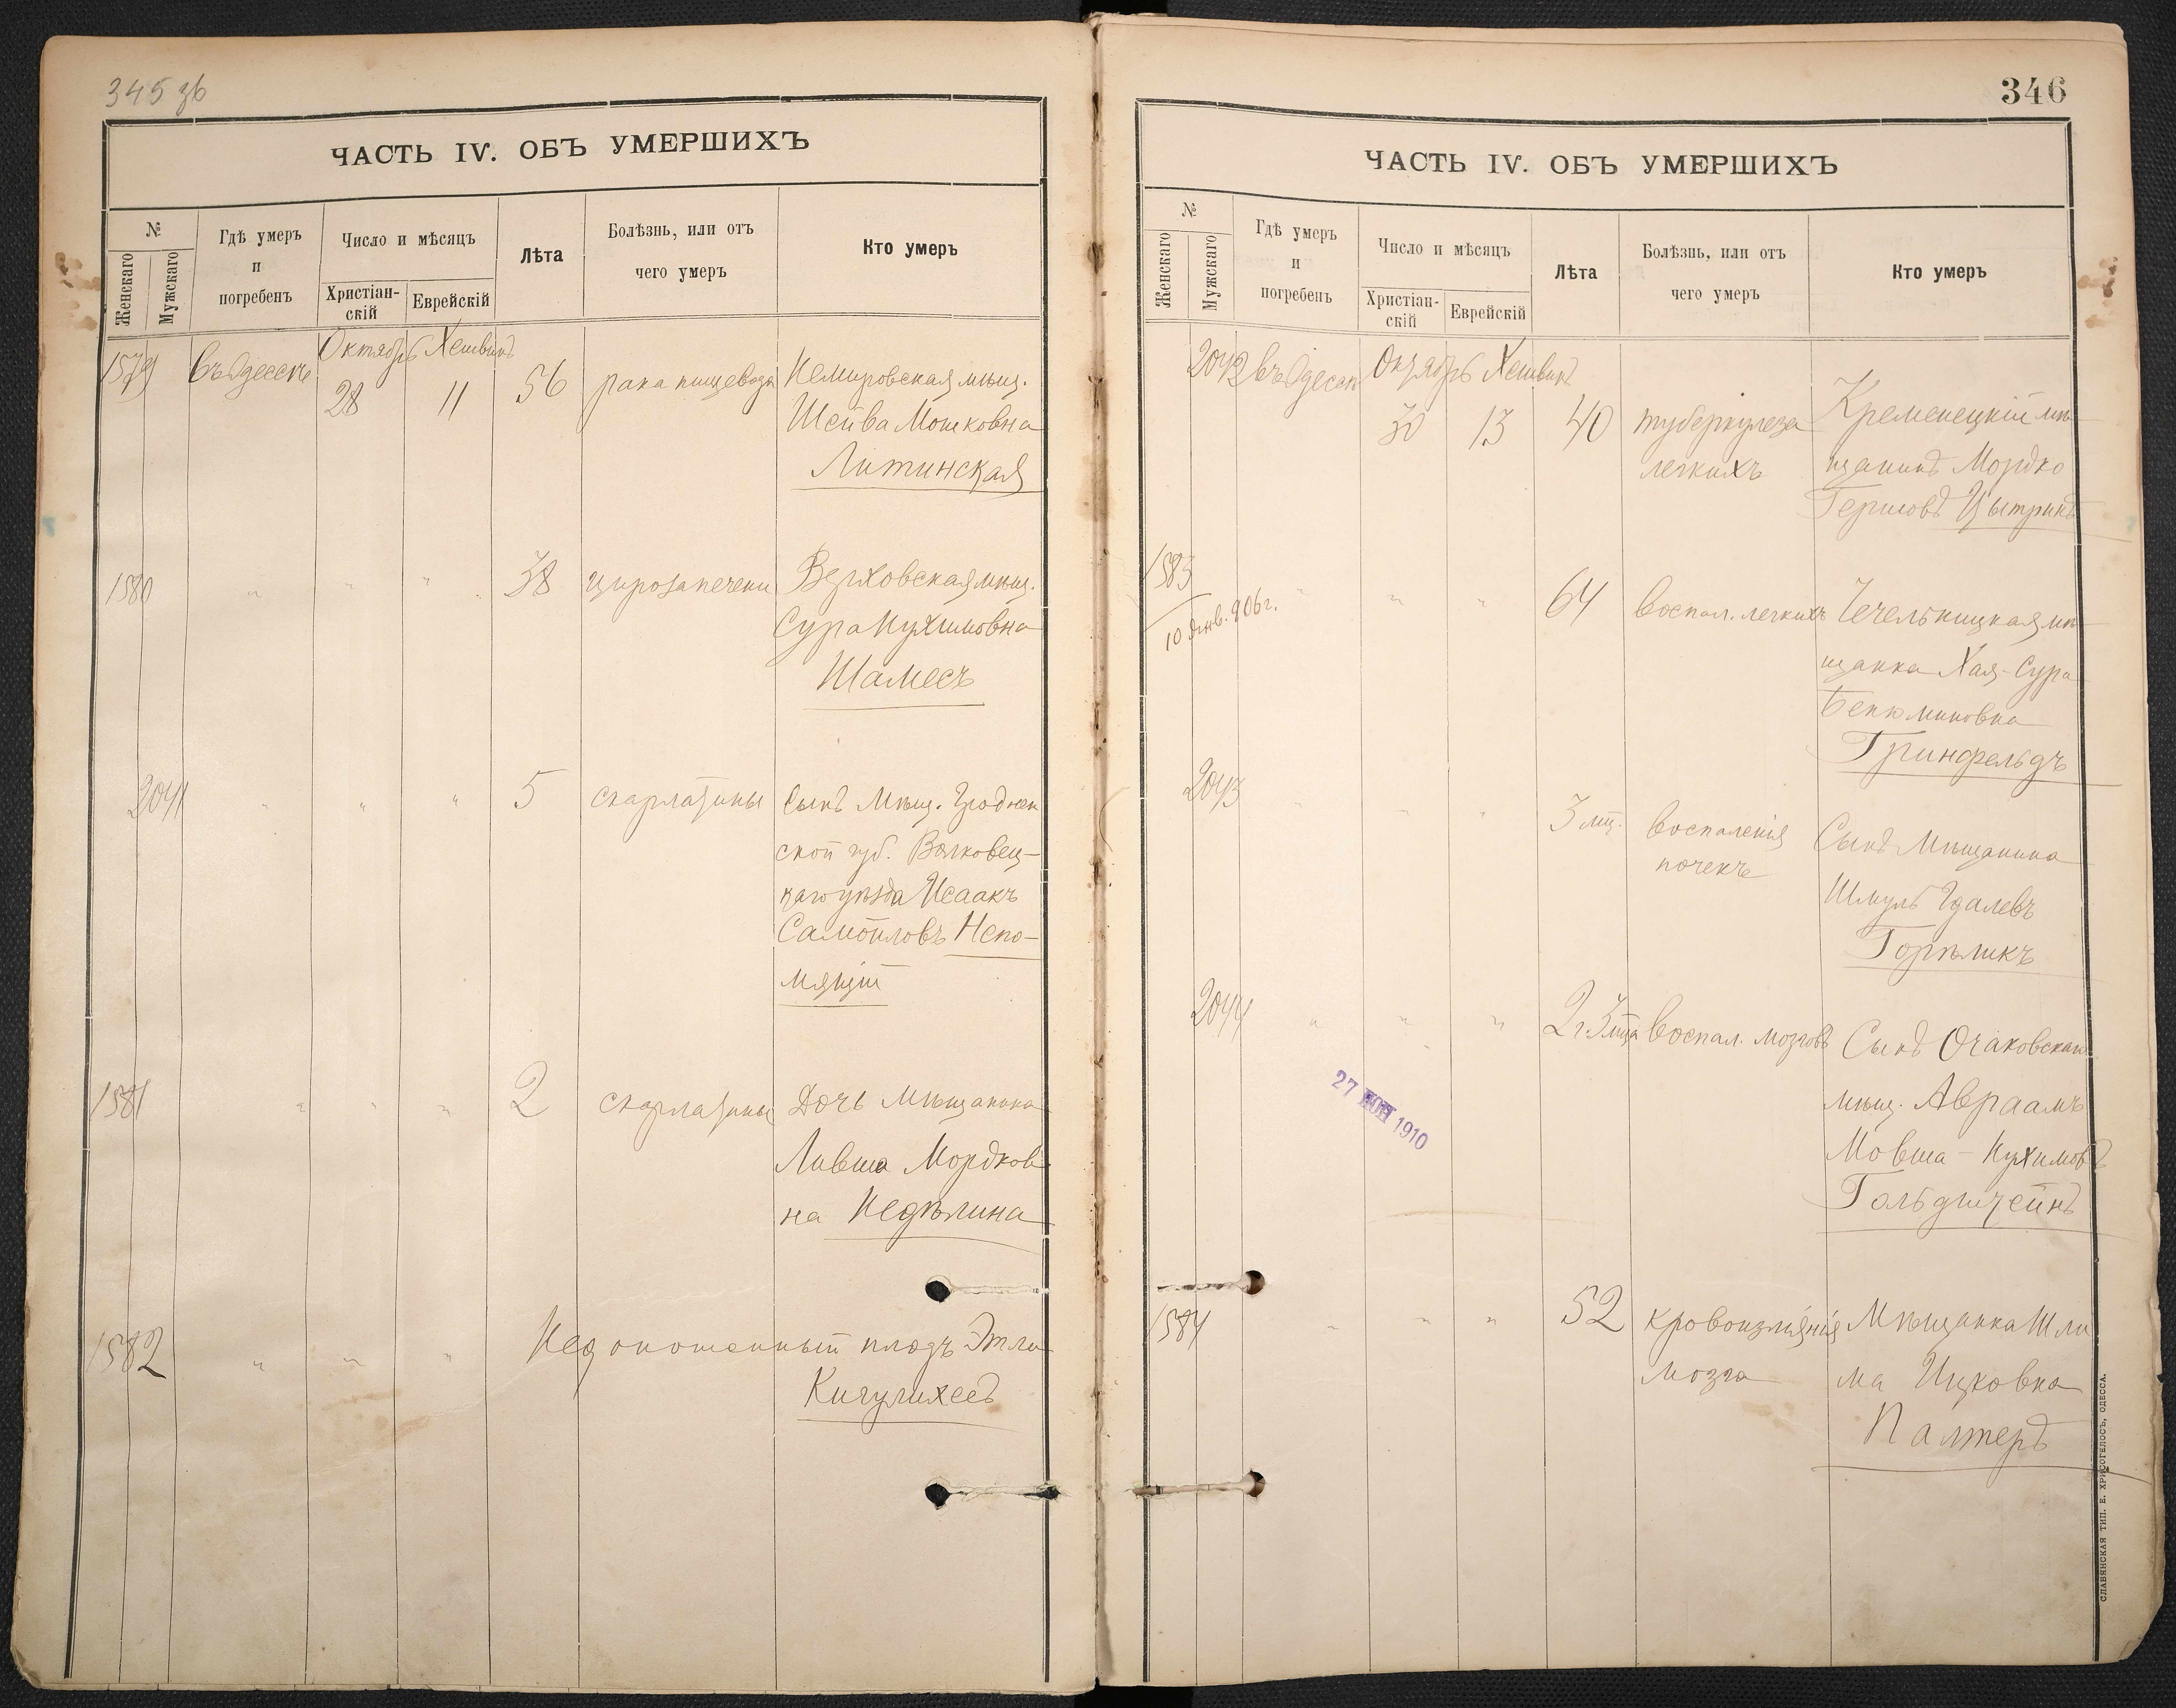 345 зб
ЧАСТЬ IV. ОБЪ УМЕРШИХЪ
№
Женскаго
Мужскаго
Гдѣ умеръ
и
погребенъ
Число и мѣсяцъ
Христіан-
скій
Еврейскій
Лѣта
Болѣзнь, или отъ
чего умеръ
Кто умеръ
Октябрь Хешванъ
1579 въ Одессѣ 28 11 56 рака пищевода Немировская мѣщ.
Шейва Мошковна
Литинская
1580 " " " 38 цироза печени Верховская мѣщ.
Сура Нухимовна
Шамесъ
2041 " " " 5 скарлатины Сынъ мѣщ. Гроднен
ской губ. Волковец-
каго уѣзда Исаакъ
Самойловъ Непо-
мящій
1581 " " " 2 скарлатины Дочь мѣщанина
Ливша Мордков
на Недѣлина
1582 " " " Недоношенный плодъ Этли
Кигулихесъ
346
ЧАСТЬ IV. ОБЪ УМЕРШИХЪ
№
Женскаго
Мужскаго
Гдѣ умеръ
и
погребенъ
Число и мѣсяцъ
Христіан-
скій
Еврейскій
Лѣта
Болѣзнь, или отъ
чего умеръ
Кто умеръ
Октябрь Хешванъ
2042 въ Одессѣ 30 13 40 туберкулеза Кременецкій мѣ
легкихъ щанинъ Мордко
Гершовъ Цытринъ
1583 " " " 64 воспал. легкихъ Чечельницкая мѣ
10 Янв. 906 г.
щанка Хая-Сура
Бенюминовна
Гринфельдъ
2043 " " " 3 мц. воспаленія Сынъ мѣщанина
почекъ
Шмуль Гдалевъ
Горѣликъ
2044 " " " 2 г. 3 мца воспал. мозговъ Сынъ Очаковскаго
мѣщ. Авраамъ
Мовша-Нухимовъ
Гольдштейнъ
27 1910
1584 " " " 52 кровоизліянія Мѣщанка Шли
мозга ма Ицковна
Палтеръ
СЛАВЯНСКАЯ ТИП. Е. ХРИСОГЕЛОСЪ, ОДЕССА.